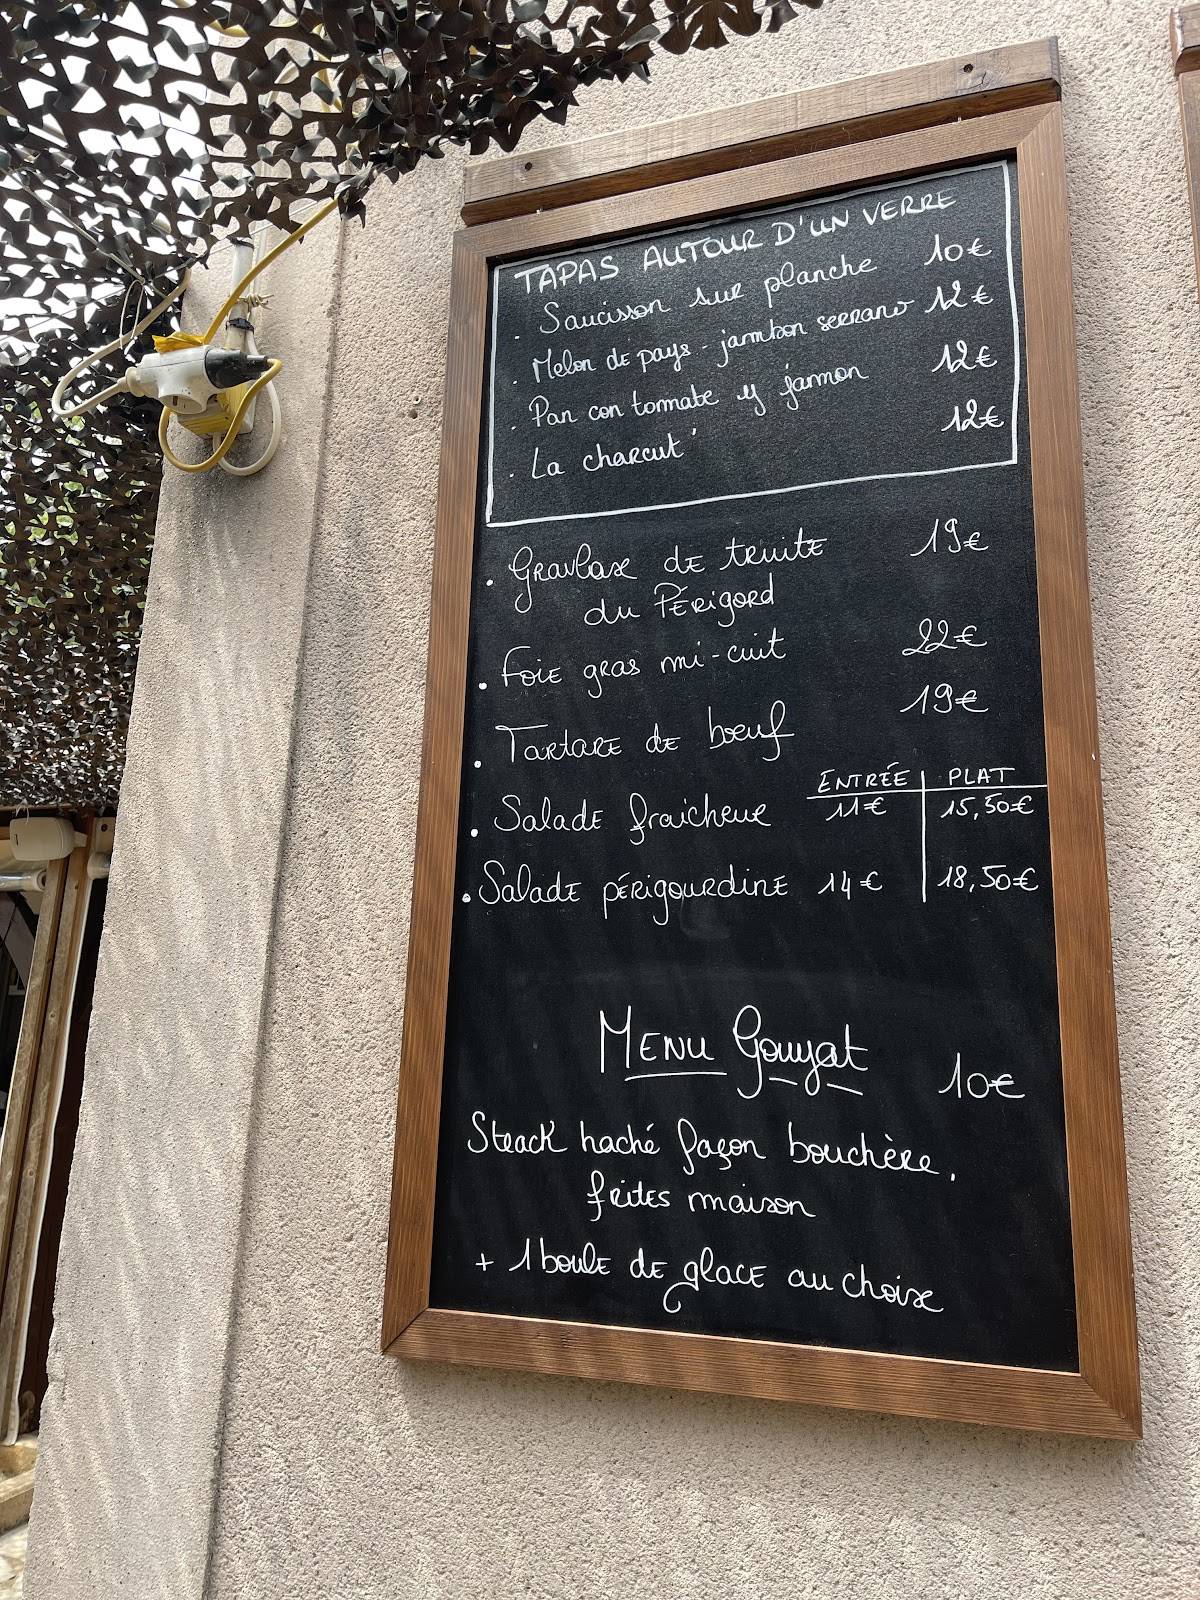 TAPAS AUTOUR D'UN VERRE
. Saucisson sur planche 10€
. Melon de pays - jambon serrano 12€
. Pan con tomate y jamon 12€
. La charcut' 12€
. Gravlax de truite 19€
du Périgord
. Foie gras mi-cuit 22€
. Tartare de bœuf 19€
ENTRÉE PLAT
. Salade fraicheur 11€ 15,50€
. Salade périgourdine 14€ 18,50€
MENU Gouyat 10€
Steack haché façon bouchère,
frites maison
+ 1 boule de glace au choix